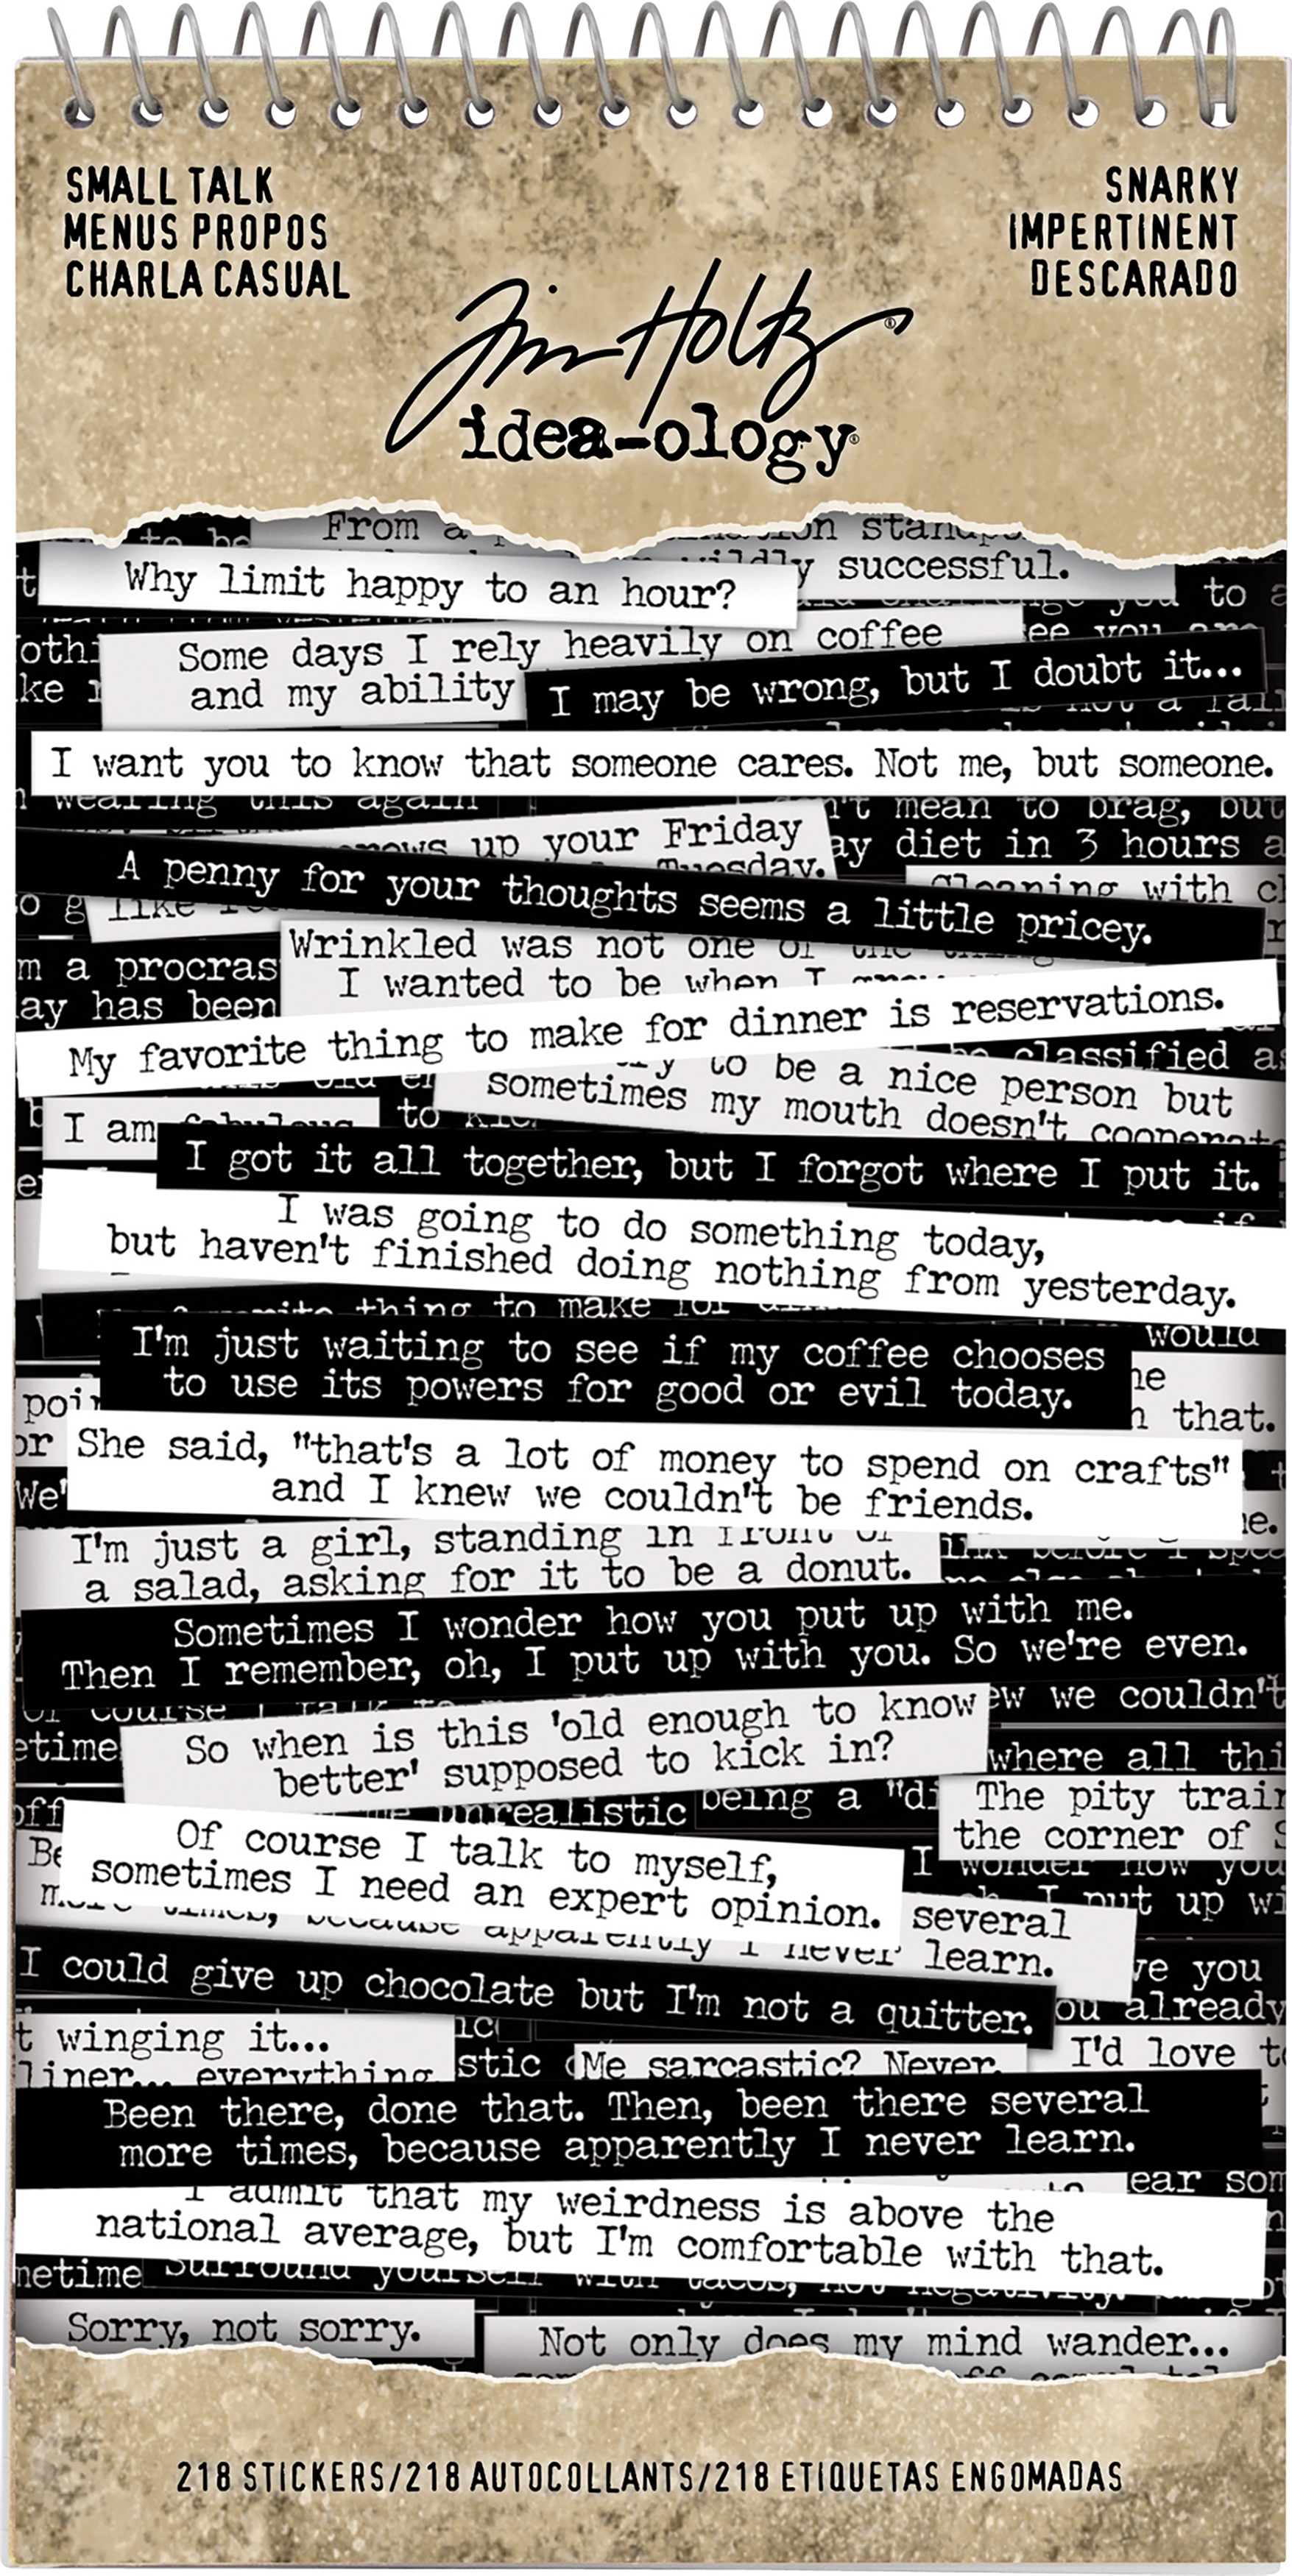 SMALL TALK
MENUS PROPOS
CHARLA CASUAL
SNARKY
IMPERTINENT
DESCARADO
Tim Holtz®
idea-ology®
From a
successful.
Why limit happy to an hour?
Some days I rely heavily on coffee
and my ability
I may be wrong, but I doubt it...
I want you to know that someone cares. Not me, but someone.
wearing this again
mean to brag, but
up your Friday
Tuesday.
diet in 3 hours
A penny for your thoughts seems a little pricey.
Cleaning with
Wrinkled was not one of the
I wanted to be when I
m a procras
ay has been
My favorite thing to make for dinner is reservations.
classified as
to be a nice person but
sometimes my mouth doesn't cooperate
I am fabulous
I got it all together, but I forgot where I put it.
I was going to do something today,
but haven't finished doing nothing from yesterday.
thing to make for
would
I'm just waiting to see if my coffee chooses
to use its powers for good or evil today.
that.
She said, "that's a lot of money to spend on crafts"
and I knew we couldn't be friends.
I'm just a girl, standing in front of
a salad, asking for it to be a donut.
Sometimes I wonder how you put up with me.
Then I remember, oh, I put up with you. So we're even.
ew we couldn't
So when is this 'old enough to know
better' supposed to kick in?
where all thi
unrealistic
being a "di
The pity train
the corner of S
Of course I talk to myself,
sometimes I need an expert opinion.
I wonder how you
I put up wi
several
more times, because apparently I never learn.
I could give up chocolate but I'm not a quitter.
ve you
ou already
t winging it...
liner... everything
stic
Me sarcastic? Never.
I'd love to
Been there, done that. Then, been there several
more times, because apparently I never learn.
I admit that my weirdness is above the
national average, but I'm comfortable with that.
metime
Surround yourself with tacos, not negativity.
Sorry, not sorry.
Not only does my mind wander...
218 STICKERS/218 AUTOCOLLANTS/218 ETIQUETAS ENGOMADAS